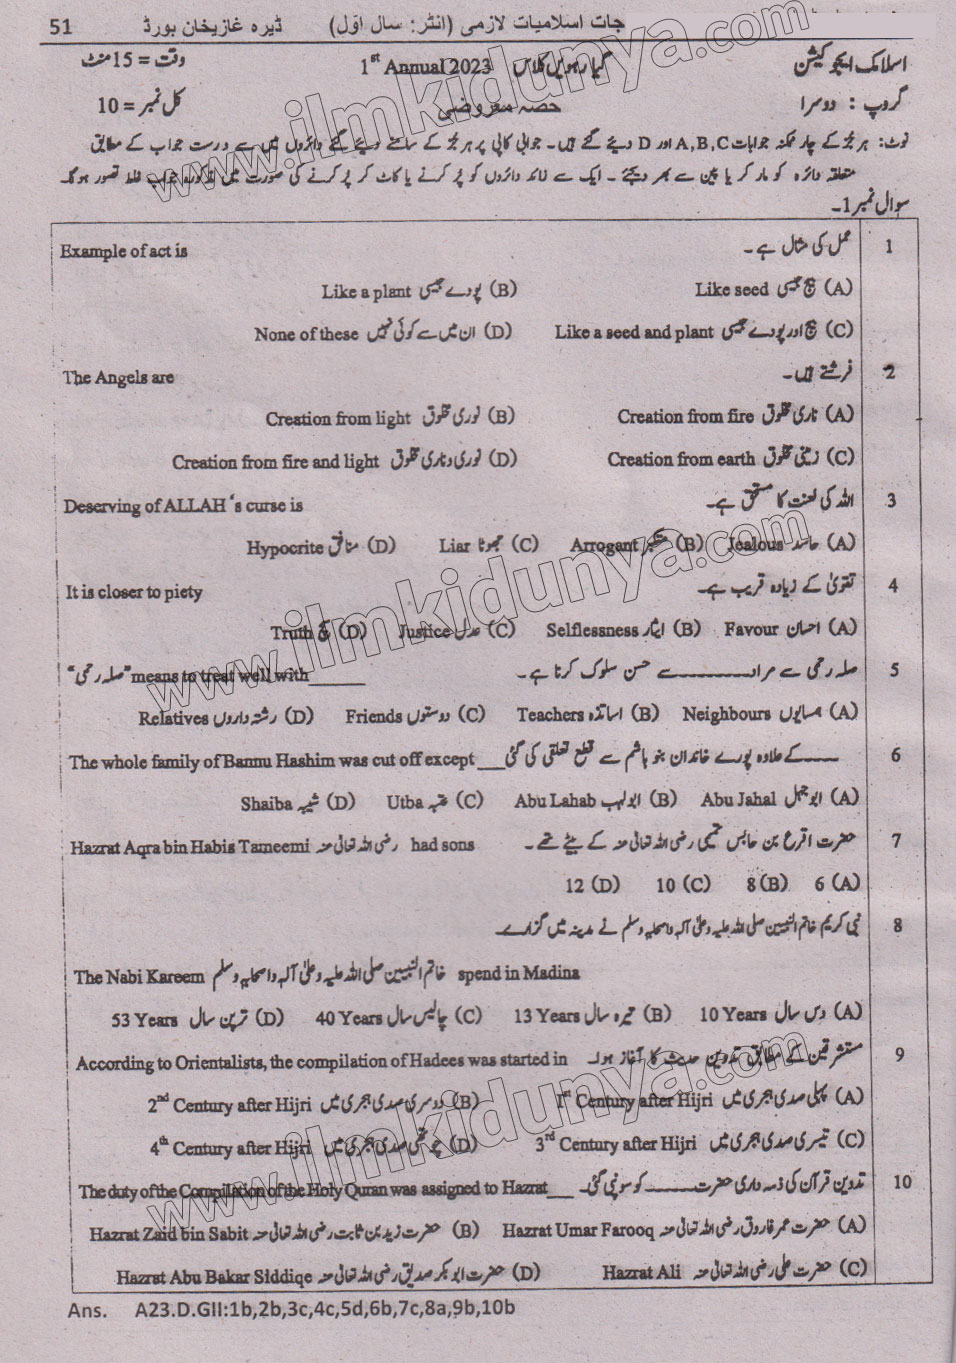 51 جات اسلامیات لازمی (انٹر: سال اوّل) ڈیرہ غازیخان بورڈ
اسلامک ایجوکیشن گیارہویں کلاس 1st Annual 2023 وقت = 15 منٹ
گروپ : دوسرا حصہ معروضی کل نمبر = 10
نوٹ: ہر جُز کے چار ممکنہ جوابات A,B,C اور D دیئے گئے ہیں۔ جوابی کاپی پر ہر جُز کے سامنے دیئے گئے دائروں میں سے درست جواب کے مطابق
متعلقہ دائرہ کو مارکر یا پین سے بھر دیجئے۔ ایک سے زائد دائروں کو پُر کرنے یا کاٹ کر پُر کرنے کی صورت میں مذکورہ جواب غلط تصور ہوگا۔
سوال نمبر 1۔
1 عمل کی مثال ہے۔ Example of act is
(A) بیج جیسی Like seed (B) پودے جیسی Like a plant
(C) بیج اور پودے جیسی Like a seed and plant (D) ان میں سے کوئی نہیں None of these
2 فرشتے ہیں۔ The Angels are
(A) ناری مخلوق Creation from fire (B) نوری مخلوق Creation from light
(C) زمینی مخلوق Creation from earth (D) نوری و ناری مخلوق Creation from fire and light
3 اللہ کی لعنت کا مستحق ہے۔ Deserving of ALLAH‘s curse is
(A) حاسد Jealous (B) متکبر Arrogant (C) جھوٹا Liar (D) منافق Hypocrite
4 تقویٰ کے زیادہ قریب ہے۔ It is closer to piety
(A) احسان Favour (B) ایثار Selflessness (C) عدل Justice (D) سچ Truth
5 صلہ رحمی سے مراد ـــــــــ سے حسن سلوک کرنا ہے۔ "صلہ رحمی" means to treat well with______
(A) ہمسایوں Neighbours (B) اساتذہ Teachers (C) دوستوں Friends (D) رشتہ داروں Relatives
6 ـــــــ کے علاوہ پورے خاندان بنو ہاشم سے قطع تعلقی کی گئی The whole family of Bannu Hashim was cut off except ___
(A) ابوجہل Abu Jahal (B) ابولہب Abu Lahab (C) عتبہ Utba (D) شیبہ Shaiba
7 حضرت اقرع بن حابس تمیمی رضی اللہ تعالیٰ عنہ کے بیٹے تھے۔ Hazrat Aqra bin Habis Tameemi رضی اللہ تعالیٰ عنہ had sons
(A) 6 (B) 8 (C) 10 (D) 12
8 نبی کریم خاتم النبیین صلی اللہ علیہ وعلیٰ آلہ واصحابہ وسلم نے مدینہ میں گزارے۔
The Nabi Kareem خاتم النبیین صلی اللہ علیہ وعلیٰ آلہ واصحابہ وسلم spend in Madina
(A) دس سال 10 Years (B) تیرہ سال 13 Years (C) چالیس سال 40 Years (D) ترپن سال 53 Years
9 مستشرقین کے مطابق تدوین حدیث کا آغاز ہوا۔ According to Orientalists, the compilation of Hadees was started in
(A) پہلی صدی ہجری میں 1st Century after Hijri (B) دوسری صدی ہجری میں 2nd Century after Hijri
(C) تیسری صدی ہجری میں 3rd Century after Hijri (D) چوتھی صدی ہجری میں 4th Century after Hijri
10 تدوین قرآن کی ذمہ داری حضرت ـــــــــ کو سونپی گئی۔ The duty of the Compilation of the Holy Quran was assigned to Hazrat___
(A) حضرت عمر فاروق رضی اللہ تعالیٰ عنہ Hazrat Umar Farooq (B) حضرت زید بن ثابت رضی اللہ تعالیٰ عنہ Hazrat Zaid bin Sabit
(C) حضرت علی رضی اللہ تعالیٰ عنہ Hazrat Ali (D) حضرت ابوبکر صدیق رضی اللہ تعالیٰ عنہ Hazrat Abu Bakar Siddiqe
Ans. A23.D.GII:1b,2b,3c,4c,5d,6b,7c,8a,9b,10b
www.ilmkidunya.com
www.ilmkidunya.com
www.ilmkidunya.com